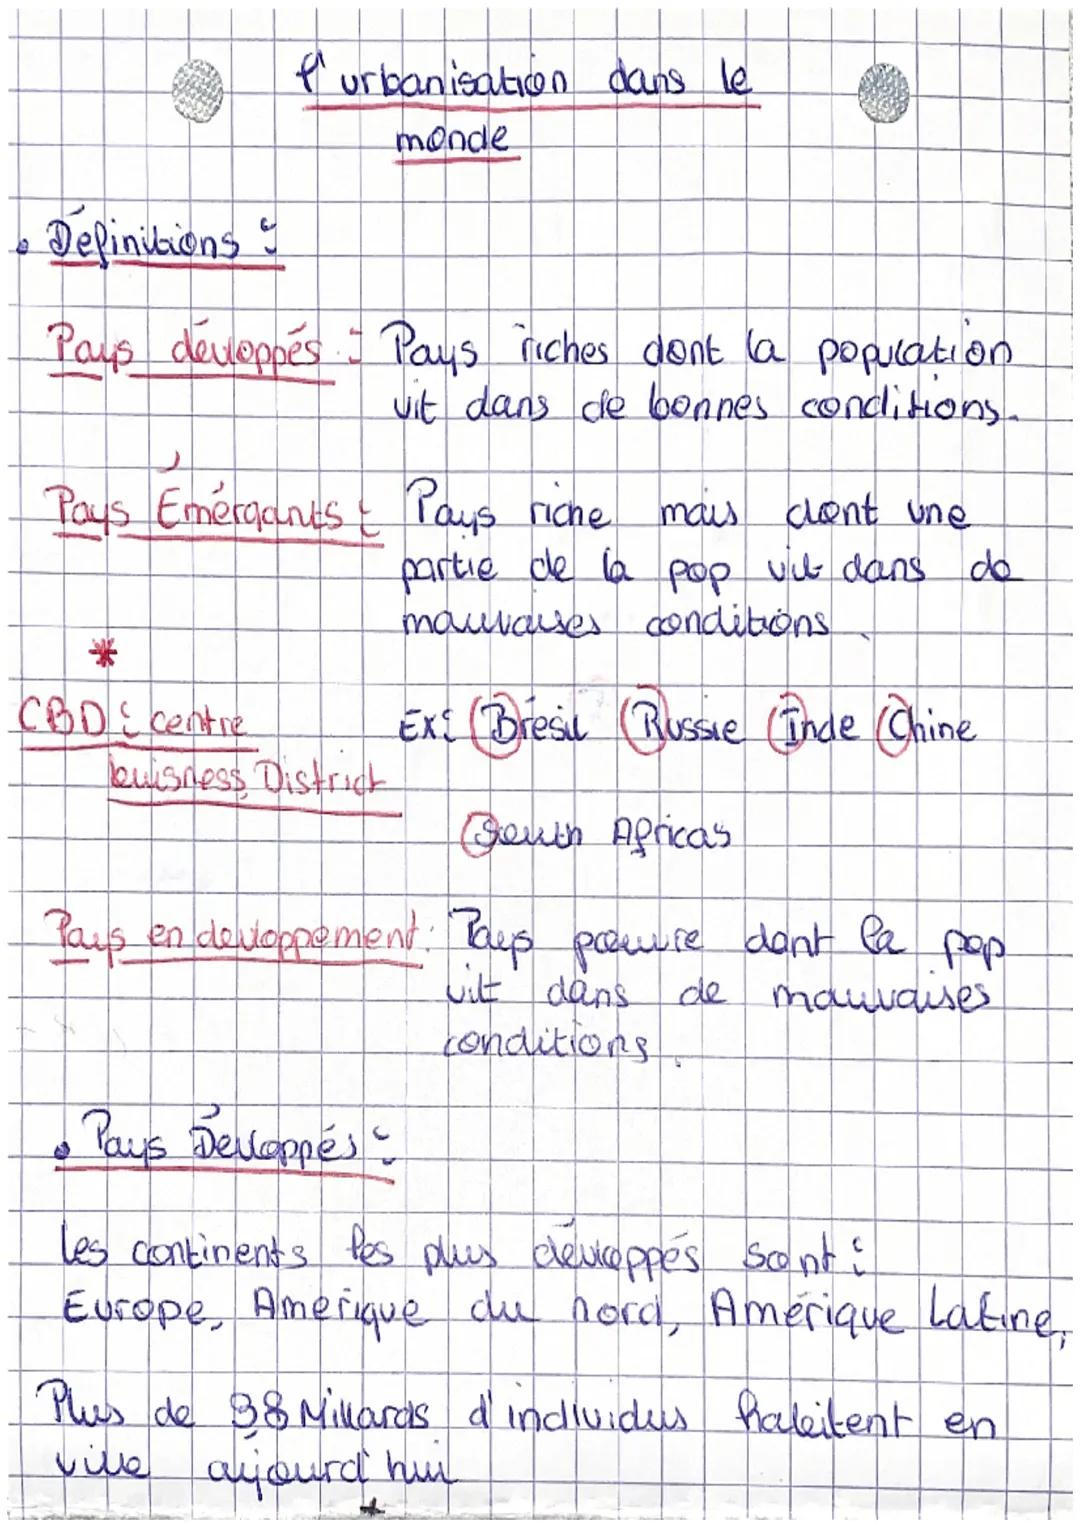 l'urbanisation dans le
monde
• Définitions :
Pays dévloppés : Pays riches dont la population
vit dans de bonnes conditions.
Pays Émérgants : Pays riche mais dont une
partie de la pop vit dans de
mauvaises conditions.
*
CBD : centre
buisness District
Ex : Brésil Russie Inde Chine
South Africas
Pays en devloppement : Pays pauvre dont la pop
vit dans de mauvaises
conditions.
• Pays Dévloppés :
Les continents les plus dévloppés sont :
Europe, Amérique du nord, Amérique Latine,
Plus de 3,8 Millards d'individus habitent en
ville aujourd'hui